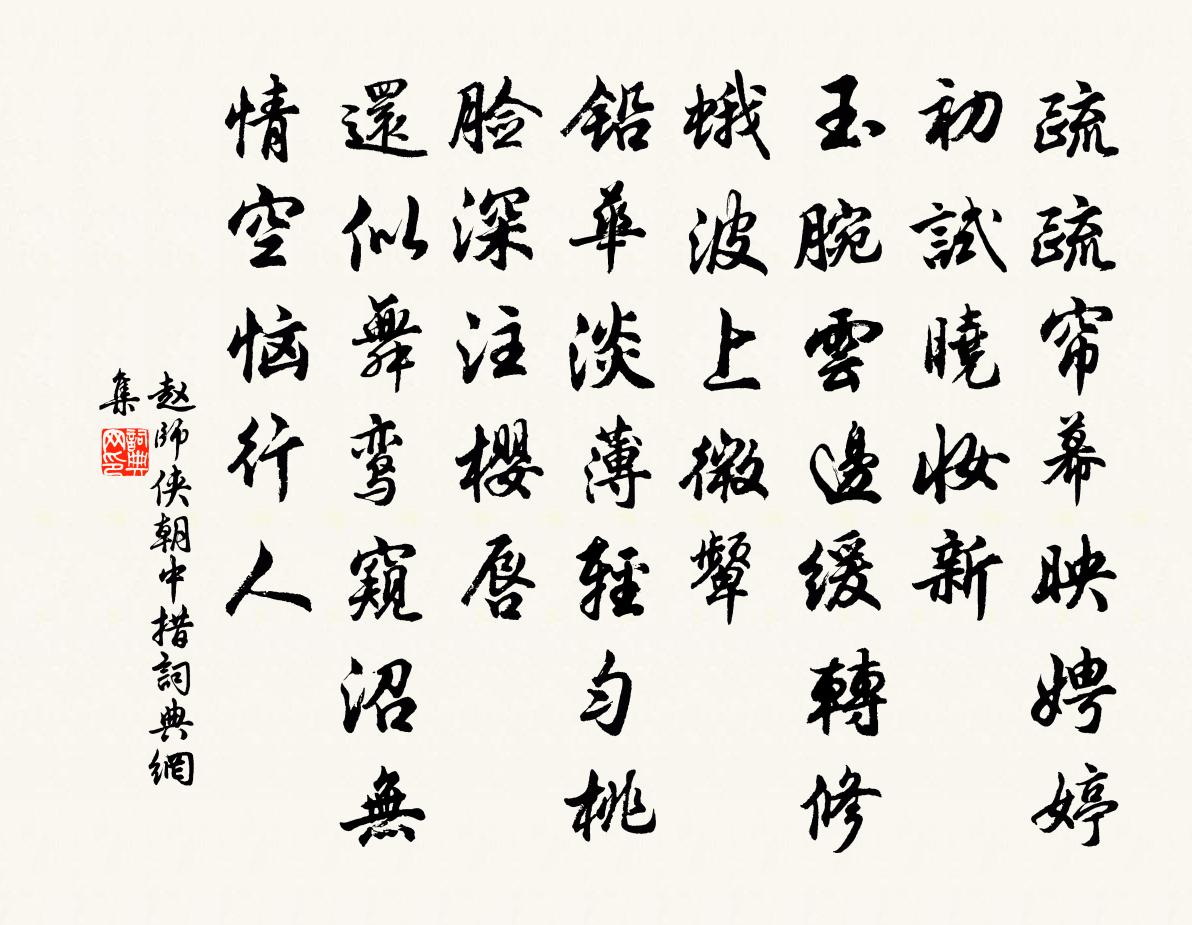 疏疏帘幕映娉婷
初試曉妝新
玉腕雲邊緩轉修
蛾波上微顰
鉛華淡薄輕勻桃
臉深注櫻唇
還似舞鸾窺沼無
情空恼行人
赵師侠朝中措詞典網
集
詞典网印